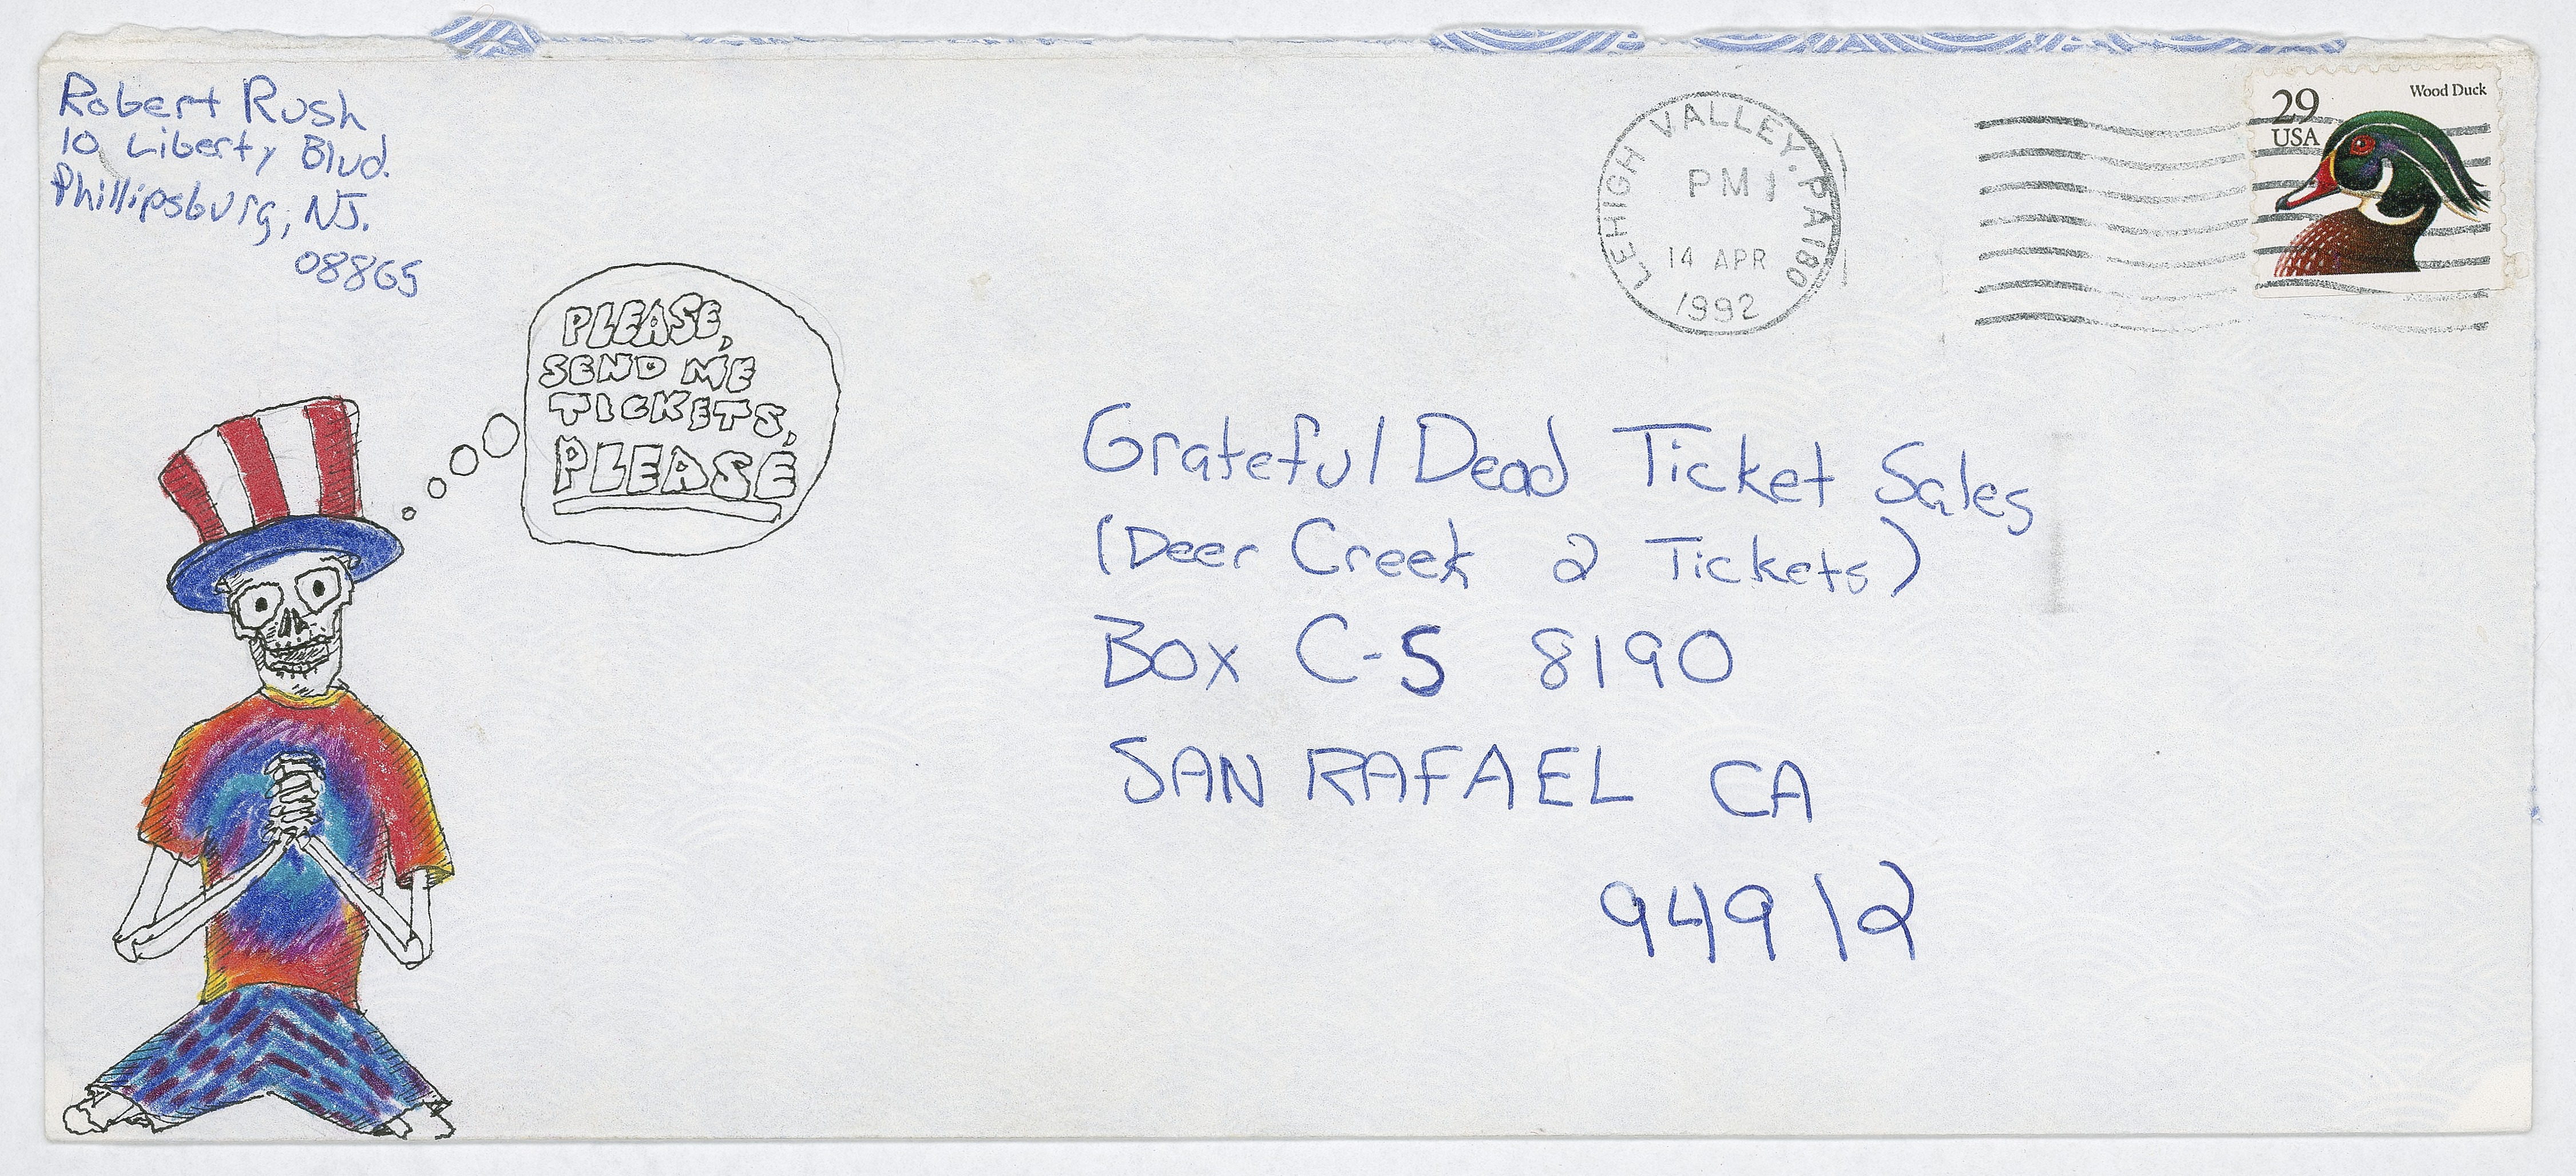 Robert Rush
10 Liberty Blvd.
Phillipsburg, NJ.
08865
PLEASE,
SEND ME
TICKETS,
PLEASE
LEHIGH VALLEY, PA 180
PM
14 APR
1992
Wood Duck
29
USA
Grateful Dead Ticket Sales
(Deer Creek 2 Tickets)
Box C-S 8190
SAN RAFAEL CA
94912